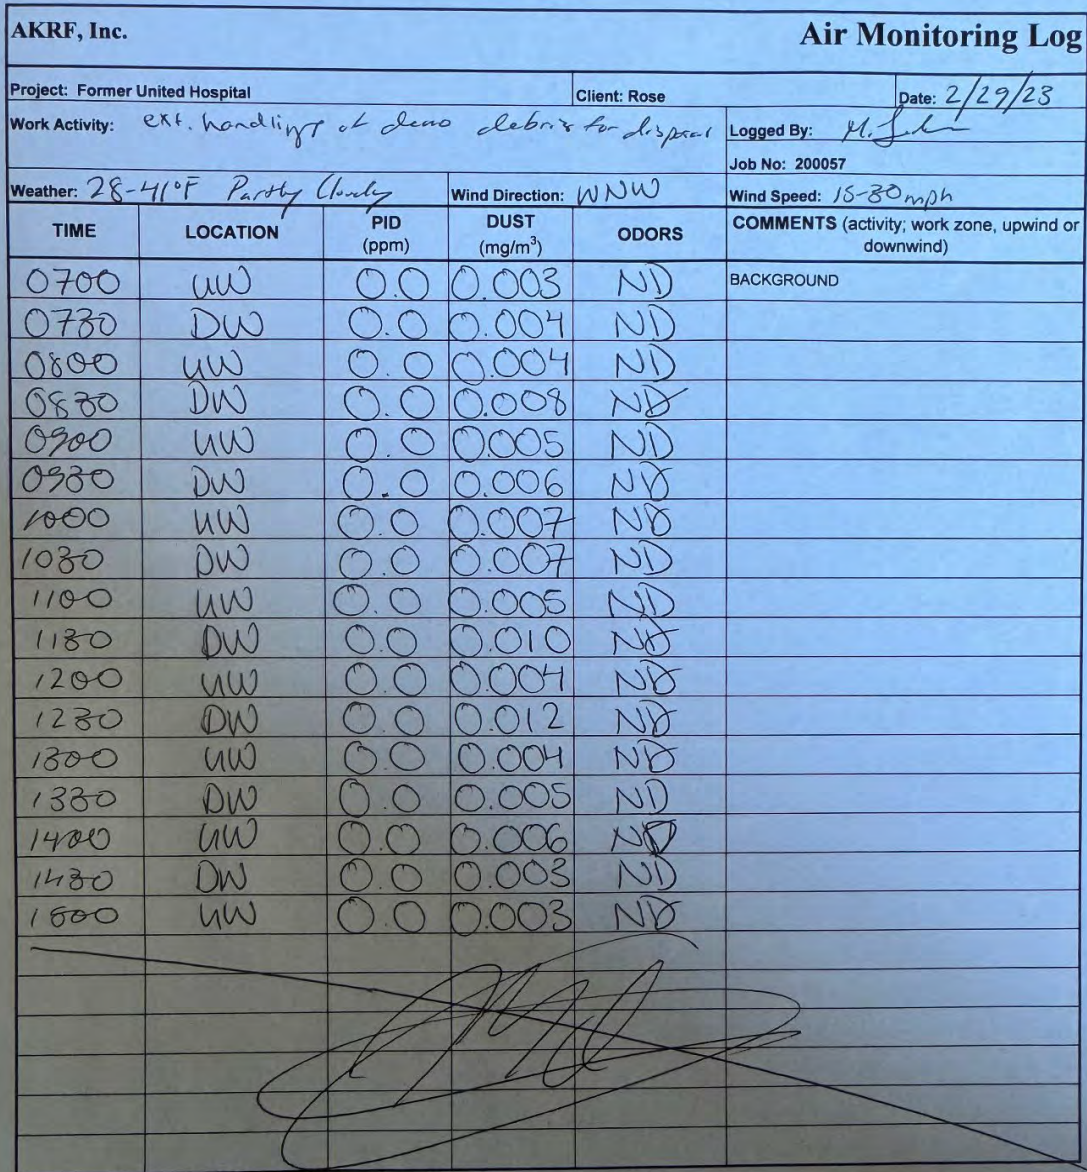 AKRF, Inc. Air Monitoring Log
Project: Former United Hospital Client: Rose Date: 2/29/23
Work Activity: ext. handling of demo debris for disposal Logged By: M.
Job No: 200057
Weather: 28-41°F Partly Cloudy Wind Direction: WNW Wind Speed: 15-30 mph
TIME LOCATION PID (ppm) DUST (mg/m³) ODORS COMMENTS (activity; work zone, upwind or downwind)
0700 UW 0.0 0.003 ND BACKGROUND
0730 DW 0.0 0.004 ND
0800 UW 0.0 0.004 ND
0830 DW 0.0 0.008 ND
0900 UW 0.0 0.005 ND
0930 DW 0.0 0.006 ND
1000 UW 0.0 0.007 ND
1030 DW 0.0 0.007 ND
1100 UW 0.0 0.005 ND
1130 DW 0.0 0.010 ND
1200 UW 0.0 0.004 ND
1230 DW 0.0 0.012 ND
1300 UW 0.0 0.004 ND
1330 DW 0.0 0.005 ND
1400 UW 0.0 0.006 ND
1430 DW 0.0 0.003 ND
1500 UW 0.0 0.003 ND